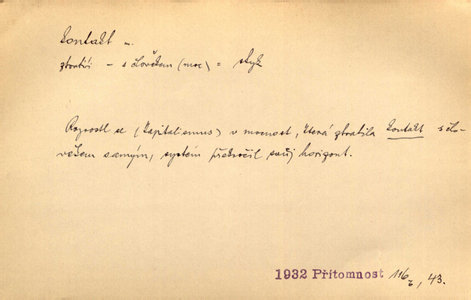 kontakt m.
ztratiti – s člověkem (moc) = styk
Rozrostl se (kapitalismus) v mocnost, která ztratila kontakt s člo-
věkem samým, systém překročil svůj horizont.
1932 Přítomnost 116/2, 43.